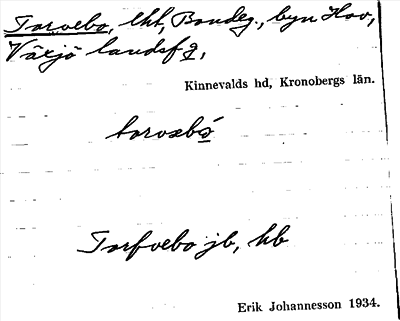 Torvebo, lht, Bondeg., byn Hov,
Växjö landsf g,
Kinnevalds hd, Kronobergs län.
Torfvebo jb, hb
Erik Johannesson 1934.